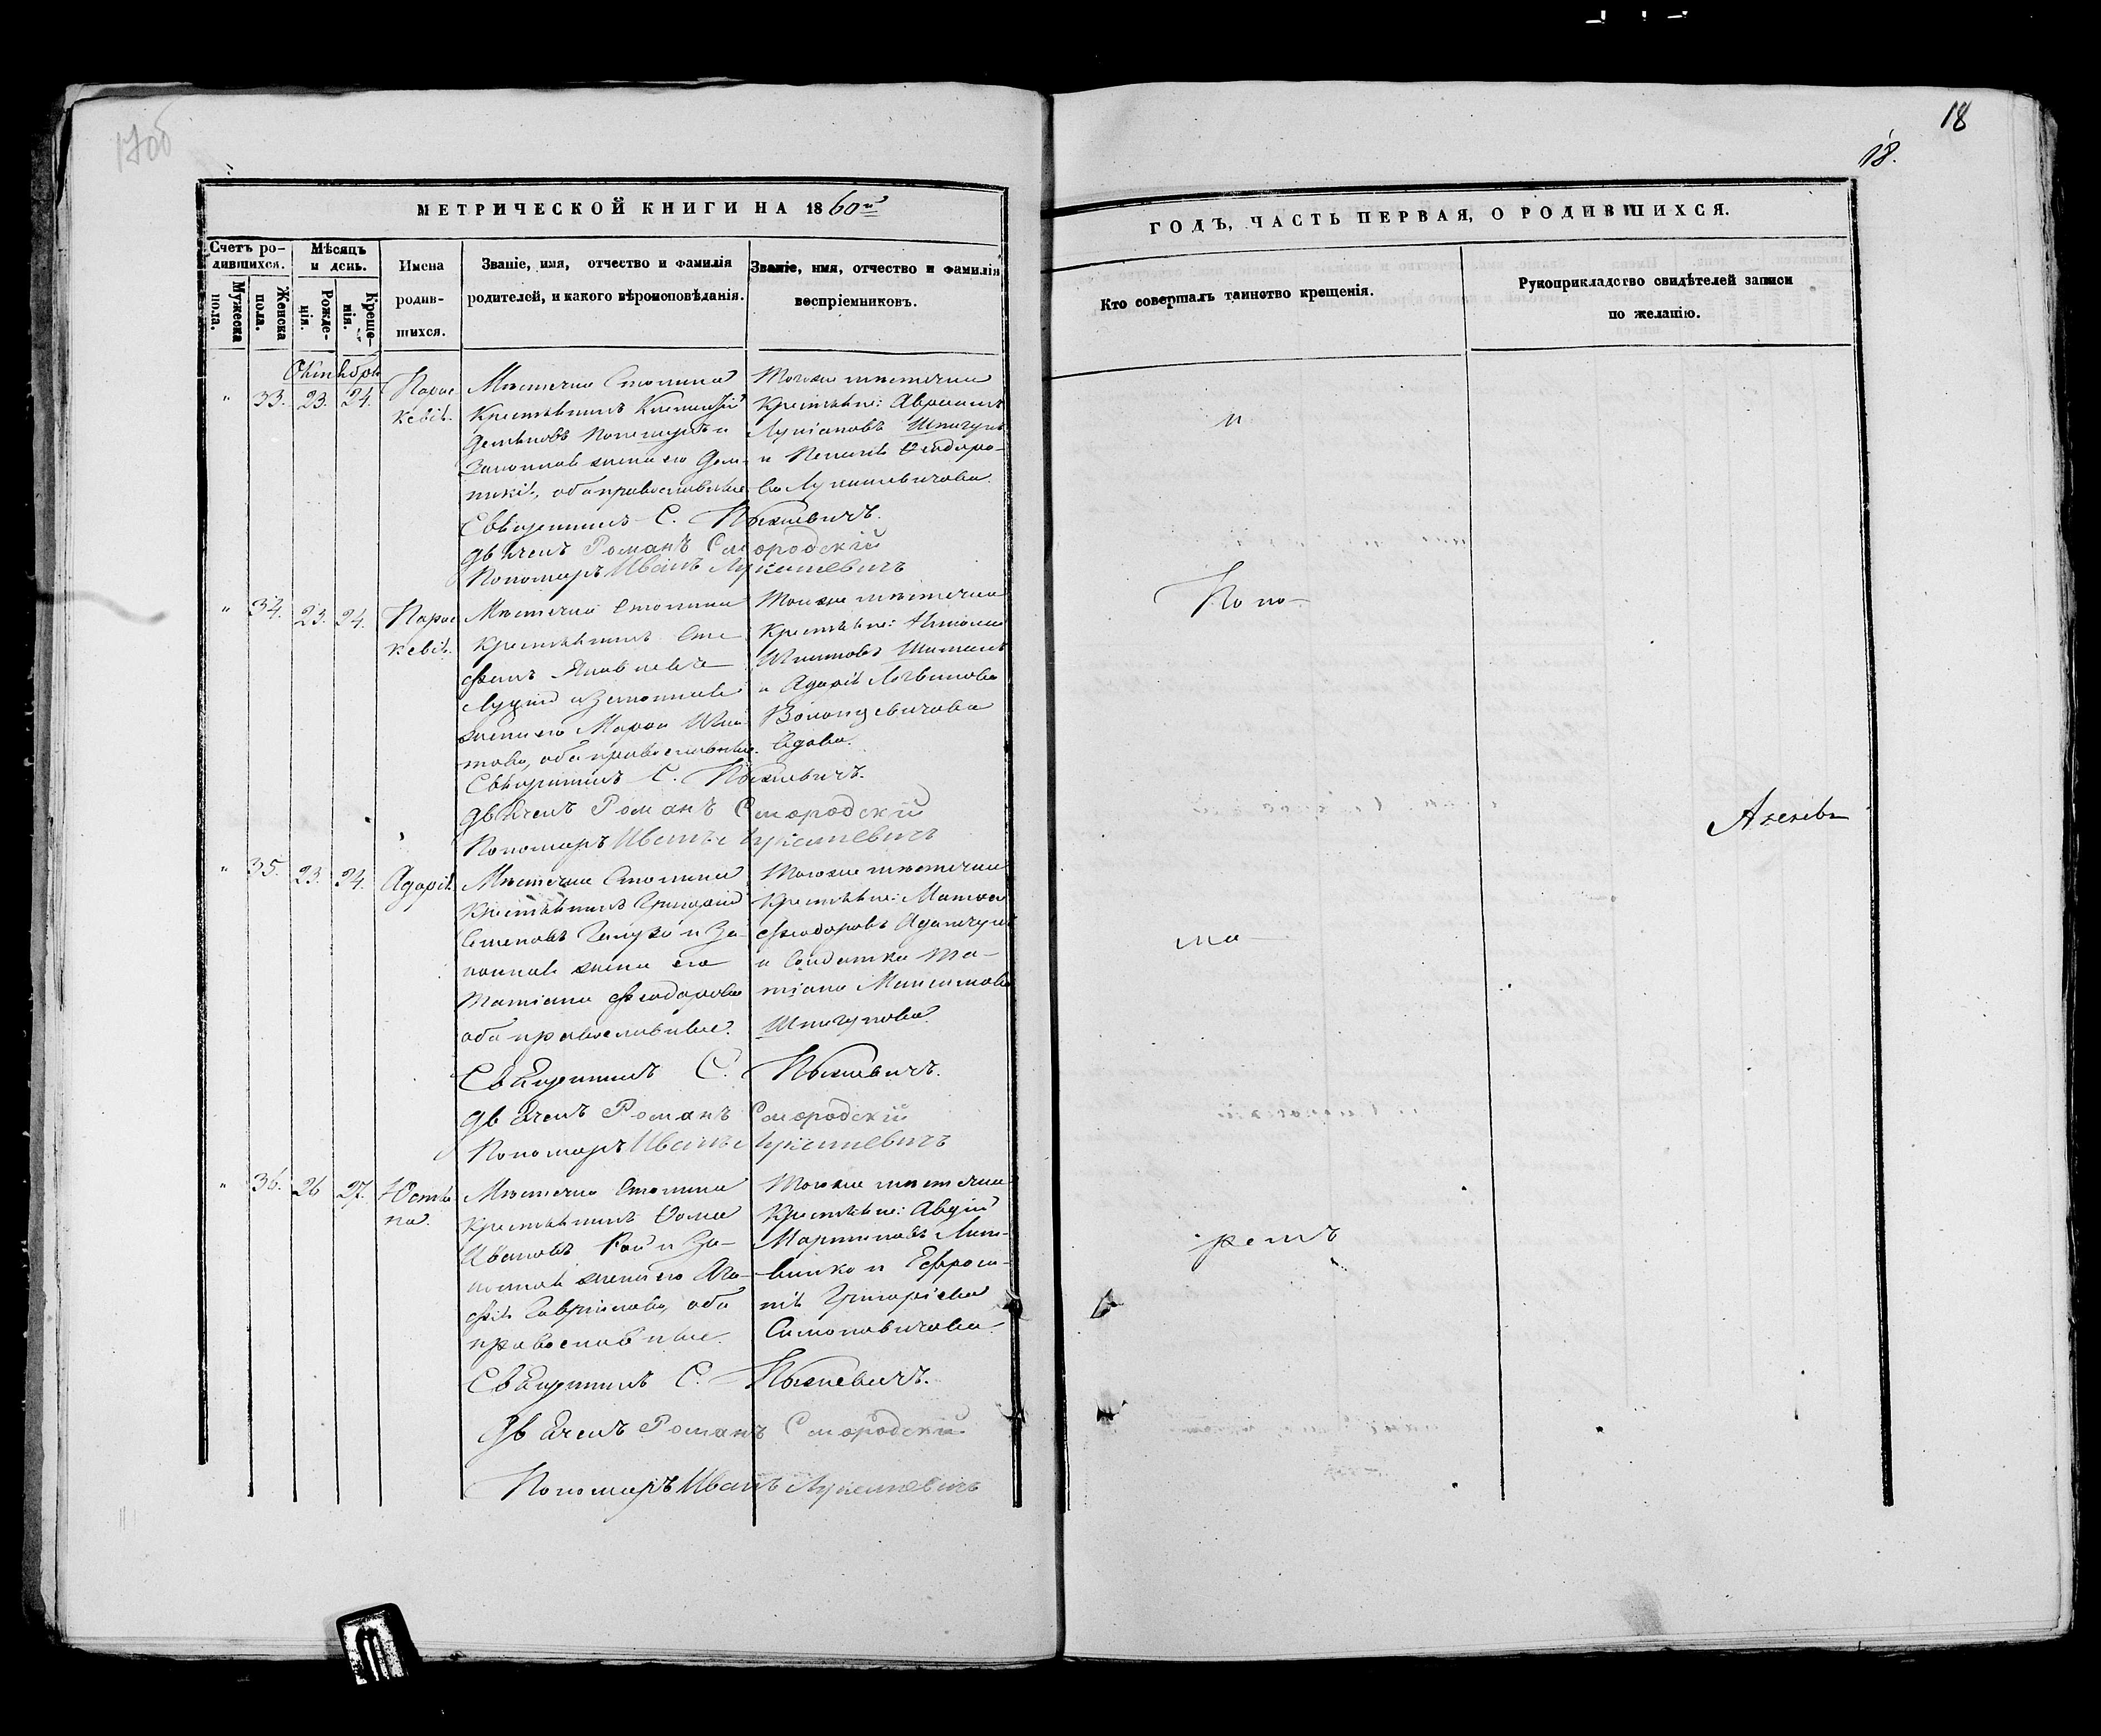 17об
18
18.
МЕТРИЧЕСКОЙ КНИГИ НА 1860й
ГОДЪ, ЧАСТЬ ПЕРВАЯ, О РОДИВШИХСЯ.
Счетъ ро-
дившихся.
Мужеска пола.
Женска пола.
Мѣсяцъ
и день.
Рожде-
нія.
Креще-
нія.
Имена
родив-
шихся.
Званіе, имя, отчество и фамилія
родителей, и какого вѣроисповѣданія.
Званіе, имя, отчество и фамилія
воспріемниковъ.
Кто совершалъ таинство крещенія.
Рукоприкладство свидѣтелей записи
по желанію.
Октября
" 33. 23. 24.
Парас
кевія.
Мѣстечка Столина
Крестьянинъ
и
законная жена его Дом-
никія, оба православные
Тогоже мѣстечка
Крестьяне: Авраамъ
Лукіановъ Шпигунъ
и Пелагія Ѳеодоро-
ва Лукашевичова.
Священникъ С.
Дьячекъ Романъ Смородскій
Пономарь Иванъ Лукашевичъ
" 34. 23. 24.
Парас
кевія.
Мѣстечка Столина
Крестьянинъ Сте
фанъ Яковлевъ
и законная
жена его Марѳа
оба православные.
Тогоже мѣстечка
Крестьяне: Антоній
и Адарія
вдова.
Священникъ С.
Дьячекъ Романъ Смородскій
Пономарь Иванъ Лукашевичъ
" 35. 23. 24.
Адарія.
Мѣстечка Столина
Крестьянинъ Григорій
Семеновъ и за-
конная жена его
Татіана Феодорова
оба православные.
Тогоже мѣстечка
Крестьяне:
Феодоровъ Адамчукъ
и Солдатка Та-
тіана Максимова
Шпигунова.
Священникъ С.
Дьячекъ Романъ Смородскій
Пономарь Иванъ Лукашевичъ
" 36. 26 27.
Юстіа
на.
Мѣстечка Столина
Крестьянинъ Ѳома
Ивановъ и за-
конная жена его Ага-
фія Гавріилова, оба
православные.
Тогоже мѣстечка
Крестьяне: Авдій
Мартиновъ Лит-
винко и Ефроси-
нія Григоріева
Симоновичова.
Священникъ С.
Дьячекъ Романъ Смородскій
Пономарь Иванъ Лукашевичъ
и
Поно-
ма-
ремъ